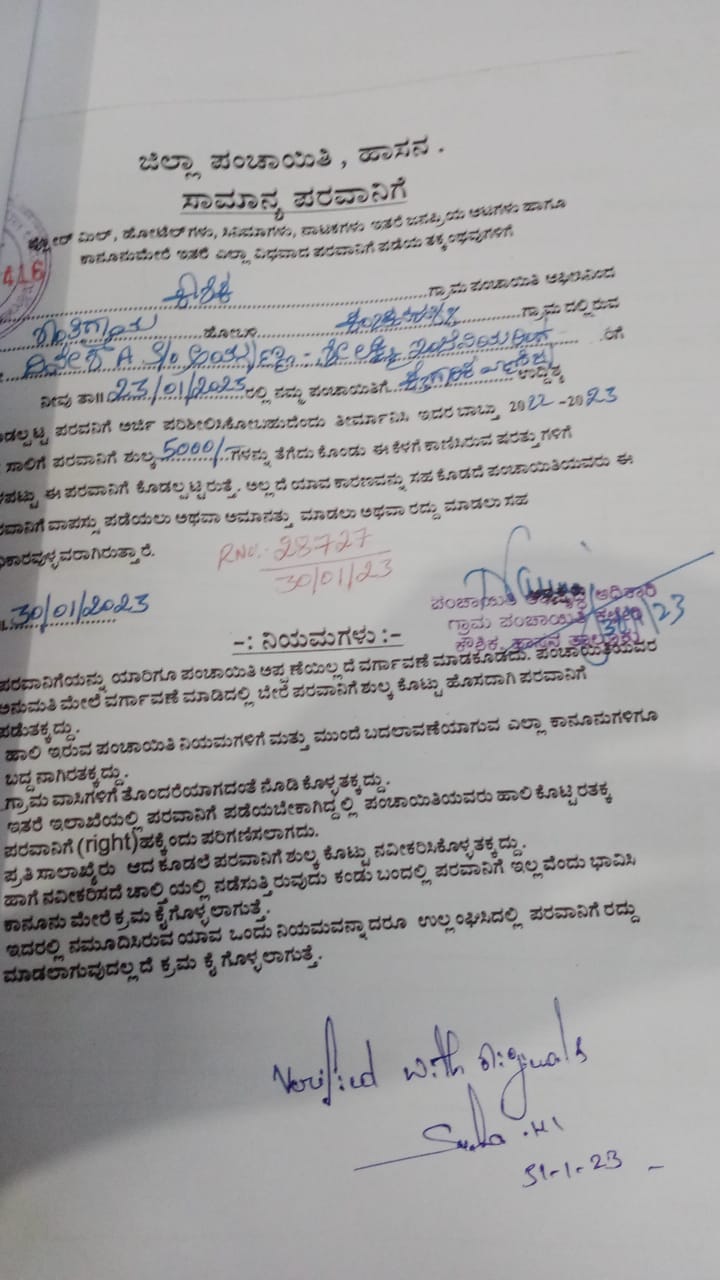 ಜಿಲ್ಲಾ ಪಂಚಾಯಿತಿ , ಹಾಸನ .
ಸಾಮಾನ್ಯ ಪರವಾನಿಗೆ
ಫ್ಲೋರ್ ಮಿಲ್, ಹೋಟೆಲ್‌ಗಳು, ಸಿನಿಮಾಗಳು, ನಾಟಕಗಳು ಇತರೆ ಜನಪ್ರಿಯ ಆಟಗಳು ಹಾಗೂ
ಕಾನೂನುಮೇರೆ ಇತರೆ ಎಲ್ಲಾ ವಿಧವಾದ ಪರವಾನಿಗೆ ಪಡೆಯ ತಕ್ಕಂಥವುಗಳಿಗೆ
416
ಗ್ರಾಮ ಪಂಚಾಯಿತಿ ಆಫೀಸಿನಿಂದ
ಹೋಬಳಿ ಗ್ರಾಮದಲ್ಲಿರುವ
A S/o ರಿಗೆ
ನೀವು ತಾ॥ 23/01/2023 ರಲ್ಲಿ ನಮ್ಮ ಪಂಚಾಯಿತಿಗೆ ಉದ್ದಿಶ್ಯ
ಪರವನಿಗೆ ಅರ್ಜಿ ಪರಿಶೀಲಿಸಿಕೋಬಹುದೆಂದು ತೀರ್ಮಾನಿಸಿ ಇದರ ಬಾಬ್ತು 2022 -2023
ಸಾಲಿಗೆ ಪರವಾನಿಗೆ ಶುಲ್ಕ 5000/- ಗಳನ್ನು ತೆಗೆದು ಕೊಂಡು ಈ ಕೆಳಗೆ ಕಾಣಿಸಿರುವ ಷರತ್ತುಗಳಿಗೆ
ಈ ಪರವಾನಿಗೆ ಕೊಡಲ್ಪಟ್ಟರುತ್ತೆ. ಅಲ್ಲದೆ ಯಾವ ಕಾರಣವನ್ನು ಸಹ ಕೊಡದೆ ಪಂಚಾಯಿತಿಯವರು ಈ
ವಾಪಸ್ಸು ಪಡೆಯಲು ಅಥವಾ ಅಮಾನತ್ತು ಮಾಡಲು ಅಥವಾ ರದ್ದು ಮಾಡಲು ಸಹ
RNO.- 28727
30/01/23
30/01/2023
ಪಂಚಾಯಿತಿ ಅಭಿವೃದ್ಧಿ ಅಧಿಕಾರಿ
ಗ್ರಾಮ ಪಂಚಾಯಿತಿ ಕಛೇರಿ
ಕೌಶಿಕ, ಹಾಸನ ತಾಲ್ಲೂಕು
-: ನಿಯಮಗಳು :-
ಪರವಾನಿಗೆಯನ್ನು ಯಾರಿಗೂ ಪಂಚಾಯಿತಿ ಅಪ್ಪಣೆಯಿಲ್ಲದೆ ವರ್ಗಾವಣೆ ಮಾಡಕೂಡದು. ಪಂಚಾಯಿತಿಯವರ
ಅನುಮತಿ ಮೇಲೆ ವರ್ಗಾವಣೆ ಮಾಡಿದಲ್ಲಿ ಬೇರೆ ಪರವಾನಿಗೆ ಶುಲ್ಕ ಕೊಟ್ಟು ಹೊಸದಾಗಿ ಪರವಾನಿಗೆ
ಪಡುತಕ್ಕದ್ದು.
ಹಾಲಿ ಇರುವ ಪಂಚಾಯಿತಿ ನಿಯಮಗಳಿಗೆ ಮತ್ತು ಮುಂದೆ ಬದಲಾವಣೆಯಾಗುವ ಎಲ್ಲಾ ಕಾನೂನುಗಳಿಗೂ
ಬದ್ದನಾಗಿರತಕ್ಕದ್ದು.
ಗ್ರಾಮ ವಾಸಿಗಳಿಗೆ ತೊಂದರೆಯಾಗದಂತೆ ನೊಡಿ ಕೊಳ್ಳತಕ್ಕದ್ದು.
ಇತರೆ ಇಲಾಖೆಯಲ್ಲಿ ಪರವಾನಿಗೆ ಪಡೆಯಬೇಕಾಗಿದ್ದಲ್ಲಿ ಪಂಚಾಯಿತಿಯವರು ಹಾಲಿ ಕೊಟ್ಟಿರತಕ್ಕ
ಪರವಾನಿಗೆ (right)ಹಕ್ಕೆಂದು ಪರಿಗಣಿಸಲಾಗದು.
ಪ್ರತಿ ಸಾಲಾಖೈರು ಆದ ಕೂಡಲೆ ಪರವಾನಿಗೆ ಶುಲ್ಕ ಕೊಟ್ಟು ನವೀಕರಿಸಿಕೊಳ್ಳತಕ್ಕದ್ದು.
ಹಾಗೆ ನವೀಕರಿಸದೆ ಚಾಲ್ತಿಯಲ್ಲಿ ನಡೆಸುತ್ತಿರುವುದು ಕಂಡು ಬಂದಲ್ಲಿ ಪರವಾನಿಗೆ ಇಲ್ಲವೆಂದು ಭಾವಿಸಿ
ಕಾನೂನು ಮೇರೆ ಕ್ರಮ ಕೈಗೊಳ್ಳಲಾಗುತ್ತೆ.
ಇದರಲ್ಲಿ ನಮೂದಿಸಿರುವ ಯಾವ ಒಂದು ನಿಯಮವನ್ನಾದರೂ ಉಲ್ಲಂಘಿಸಿದಲ್ಲಿ ಪರವಾನಿಗೆ ರದ್ದು
ಮಾಡಲಾಗುವುದಲ್ಲದೆ ಕ್ರಮ ಕೈಗೊಳ್ಳಲಾಗುತ್ತೆ.
Verified with originals
31-1-23